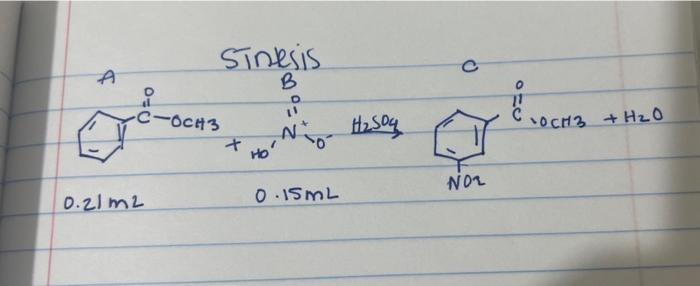 SINTESIS
A B C
O O O
C-OCH3 + HO N+ O- H2SO4 C OCH3 + H2O
NO2
0.21 mL 0.15 mL